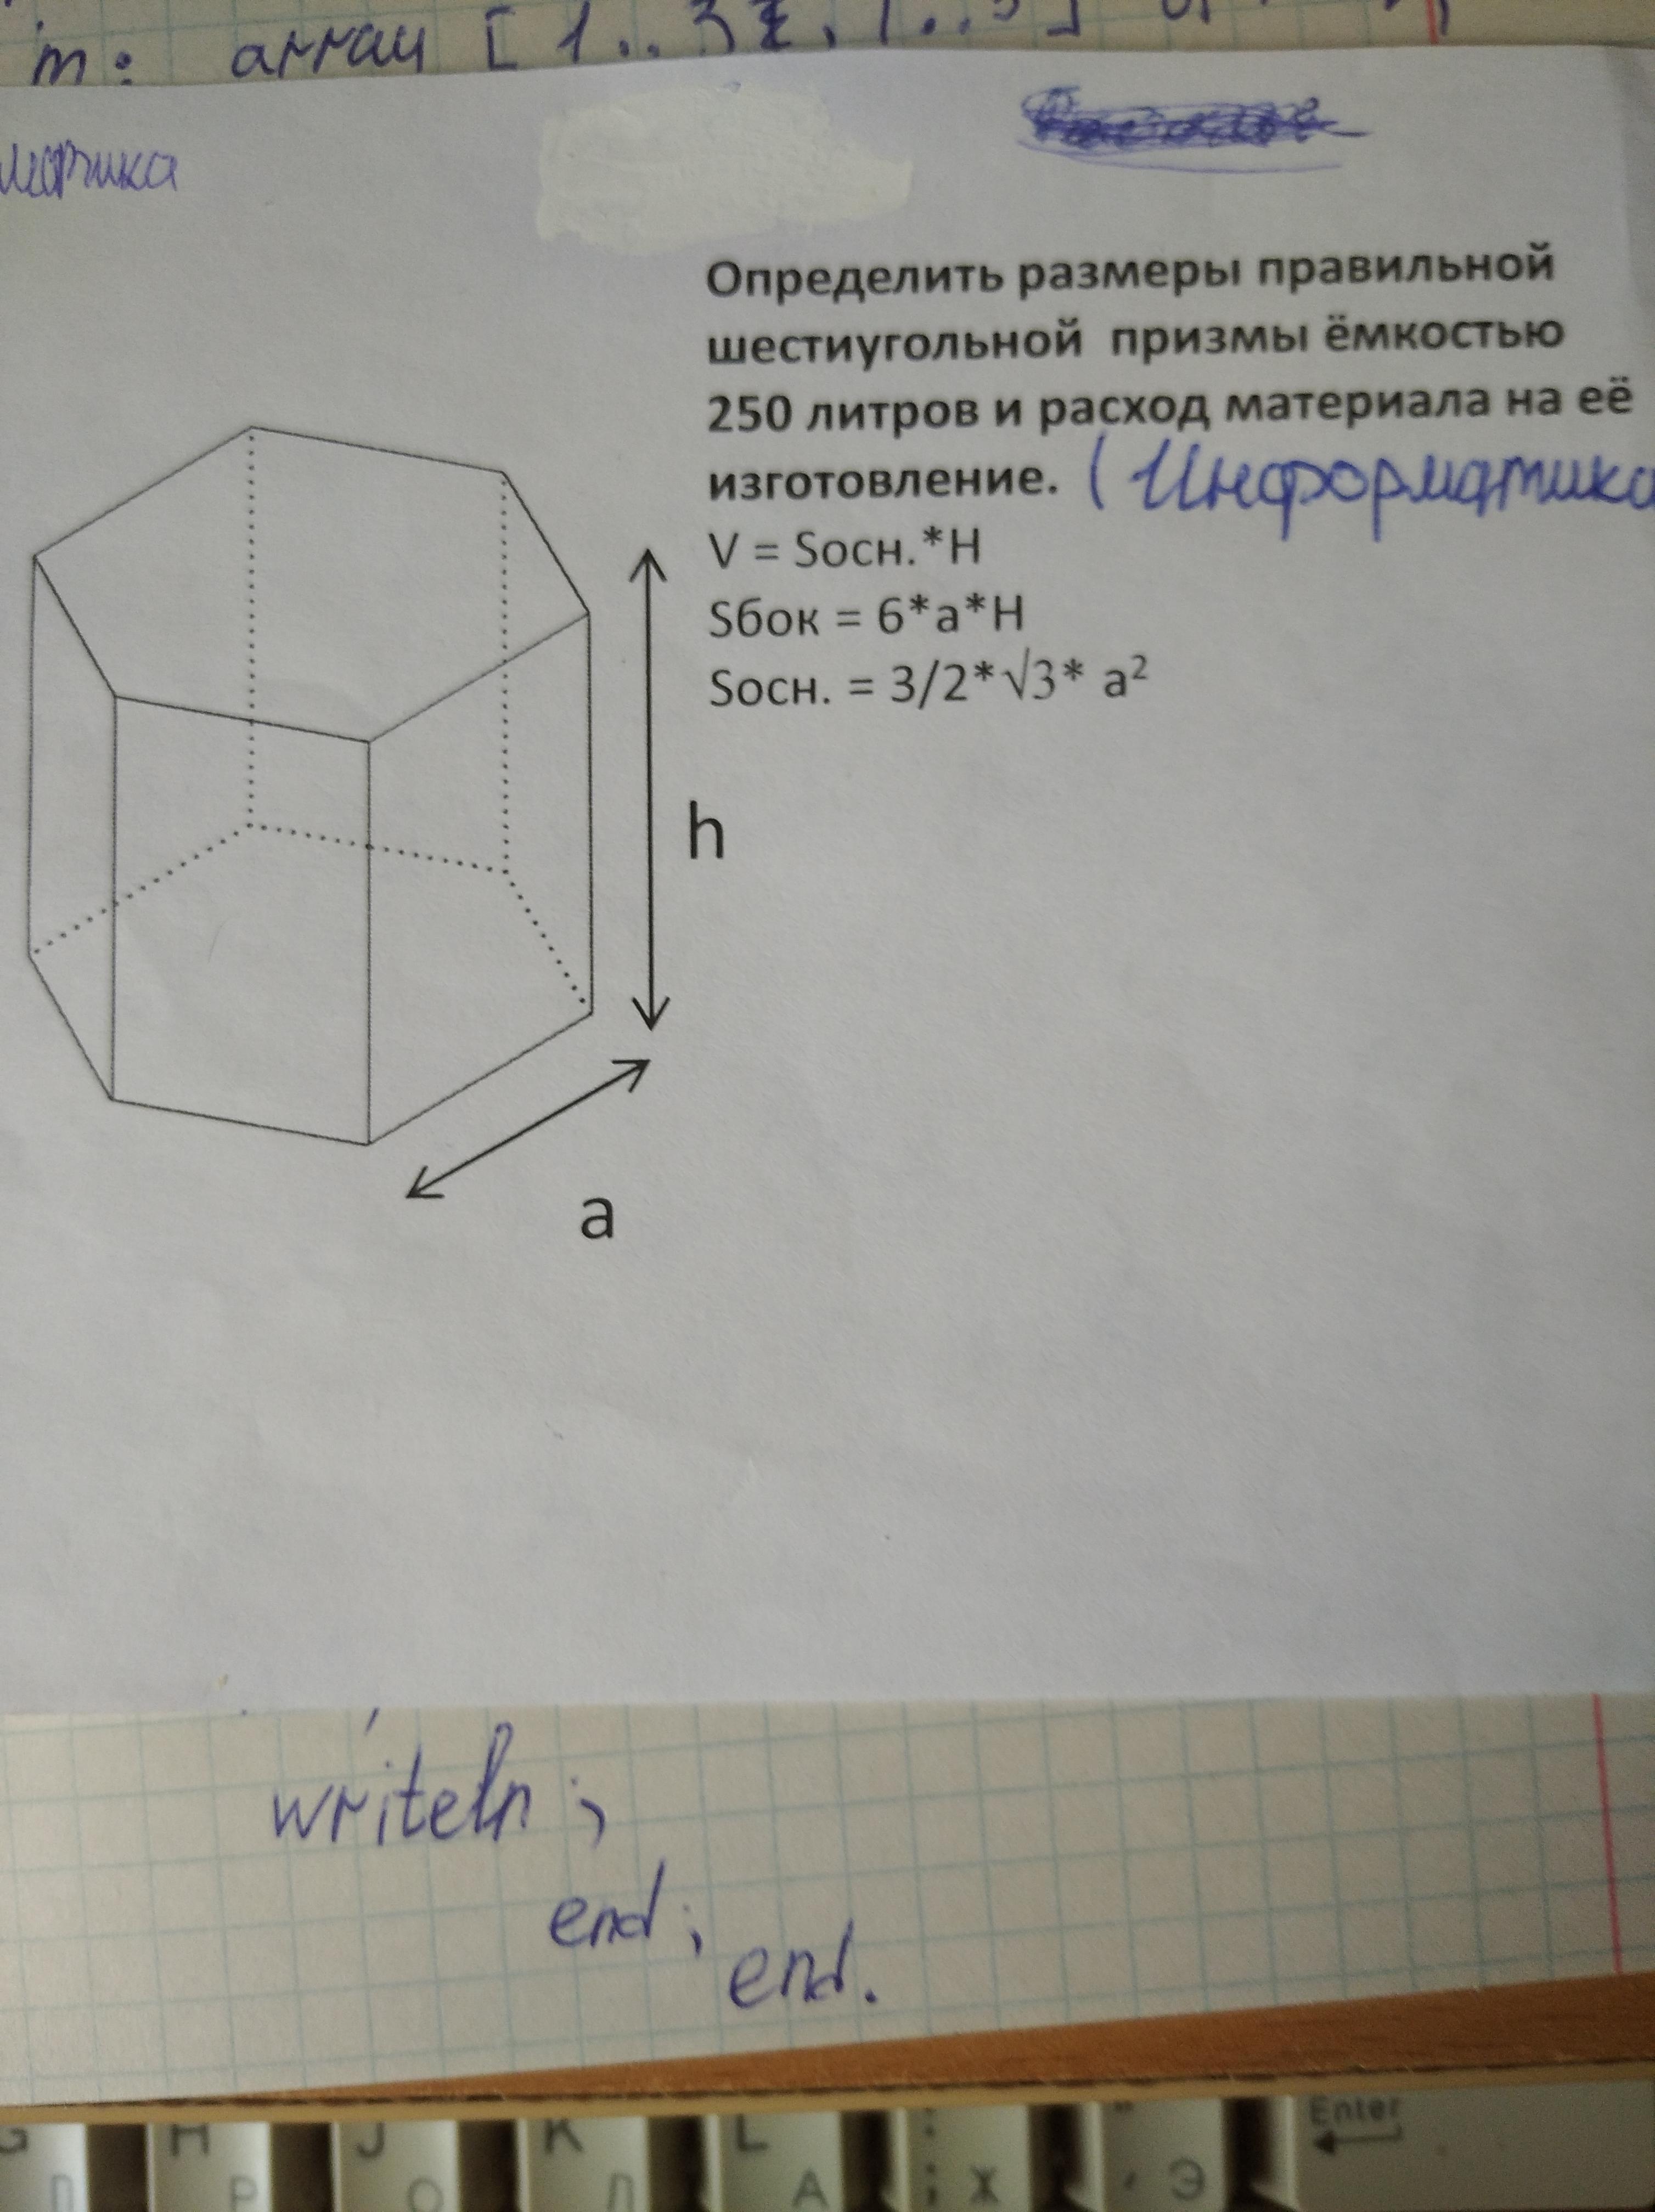 m: array [1..3
матика
Определить размеры правильной
шестиугольной призмы ёмкостью
250 литров и расход материала на её
изготовление. (Информатика
V = Sосн.*H
Sбок = 6*a*H
Sосн. = 3/2*√3* a²
h
a
writeln;
end;
end.
G H J K L : ; " ' Enter
П Р О Л А Ж Э